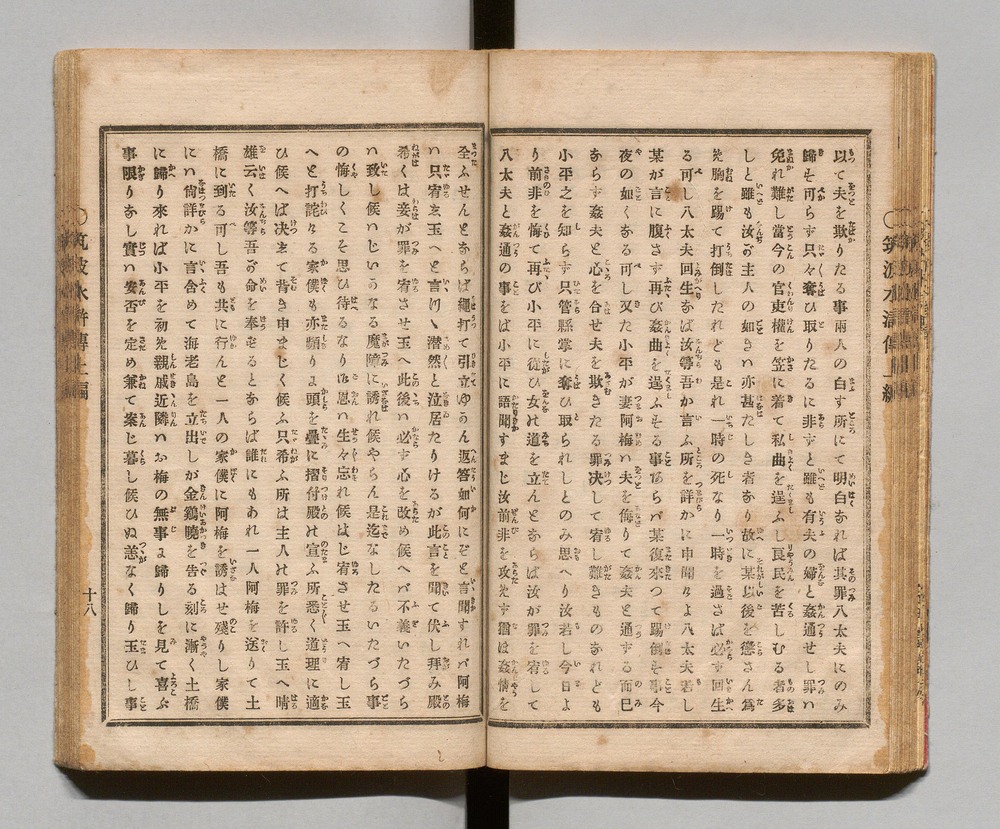 以て夫を欺りたる事兩人の白す所にて明白なれば其罪八太夫にのみ
歸せ可らず只々奪ひ取りたるに非ずと雖も有夫の婦と姦通せし罪ハ
免れ難し當今の官吏權を笠に着て私曲を逞ふし良民を苦しむる者多
しと雖も汝の主人の如きハ亦甚だしき者なり故に某以後を懲さん爲
胸を踢て打倒したれども是れ一時の死なり一時を過さば必ず回生
る可し八太夫回生なば汝等吾が言ふ所を詳かに申聞けよ八太夫若し
某が言に腹さず再び姦曲を逞ふせる事あらバ某復來つて踢倒す事今
夜の如くなる可し又た小平が妻阿梅ハ夫を侮りて姦夫と通ずる而已
ならず姦夫と心を合せ夫を欺きたる罪决して宥し難きものなれども
小平之を知らず只管縣掌に奪ひ取られしとのみ思へり汝若し今日よ
り前非を悔て再び小平に從ひ女の道を立んとならば汝が罪を宥して
八太夫と姦通の事をば小平に語聞すまじ汝前非を改めず猶は姦情を
全ふせんとならば繩打て引立ゆかん返答如何にぞと言聞すれバ阿梅
ハ只宥玉へと言けへ潸然と泣居たりけるが此言を聞て伏し拜み殿
希くは妾が罪を宥させ玉へ此後ハ必ず心を改め候へバ不義いたづら
ハ致し候ハじいかなる魔障に誘れ候やらん是迄なしたるいたづら事
の悔しくこそ思ひ待るなり御恩ハ生々忘れ候はじ宥させ玉へ宥し玉
へと打詫る家僕も亦頻りに頭を疊に摺付殿の宣ふ所悉く道理に適
ひ候へば决して背き申まじく候ふ只希ふ所は主人の罪を許し玉へ晴
雄云く汝等吾の命を奉ずるとならば誰にもあれ一人阿梅を送りて土
橋に到る可し吾も共に行んと一人の家僕に阿梅を誘はせ殘りし家僕
にハ尙詳かに言含めて海老島を立出しが金鷄曉を告る刻に漸く土橋
に歸り來れば小平を初め親戚近隣ハお梅の無事に歸りしを見て喜ぶ
事限りなし實ハ妾否を定め兼て案じ暮し候ひぬ恙なく歸り玉ひし事
筑波水滸傳上編
十八